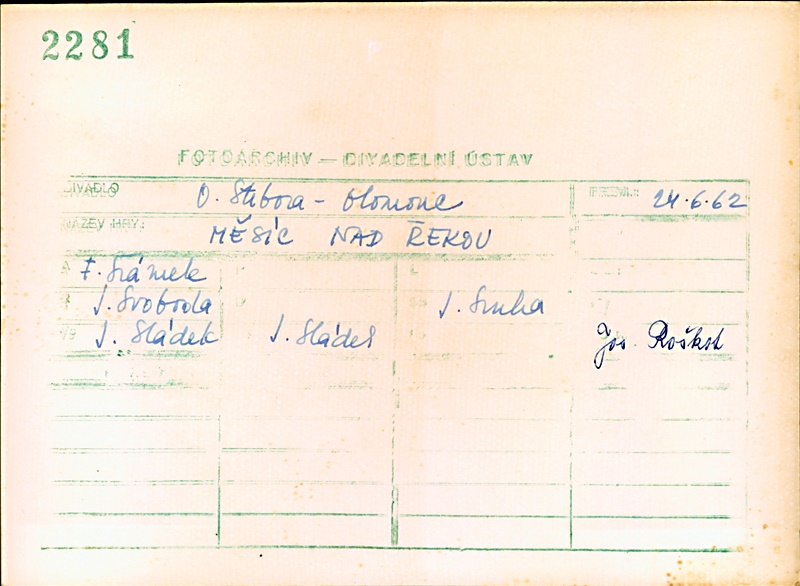 2281
FOTOARCHIV — DIVADELNÍ ÚSTAV
DIVADLO O. Stibora - Olomouc PREM.: 24.6.62
NÁZEV HRY: MĚSÍC NAD ŘEKOU
F. Šrámek
J. Svoboda J. Sruha
J. Sládek J. Sládek Jos. Roškot